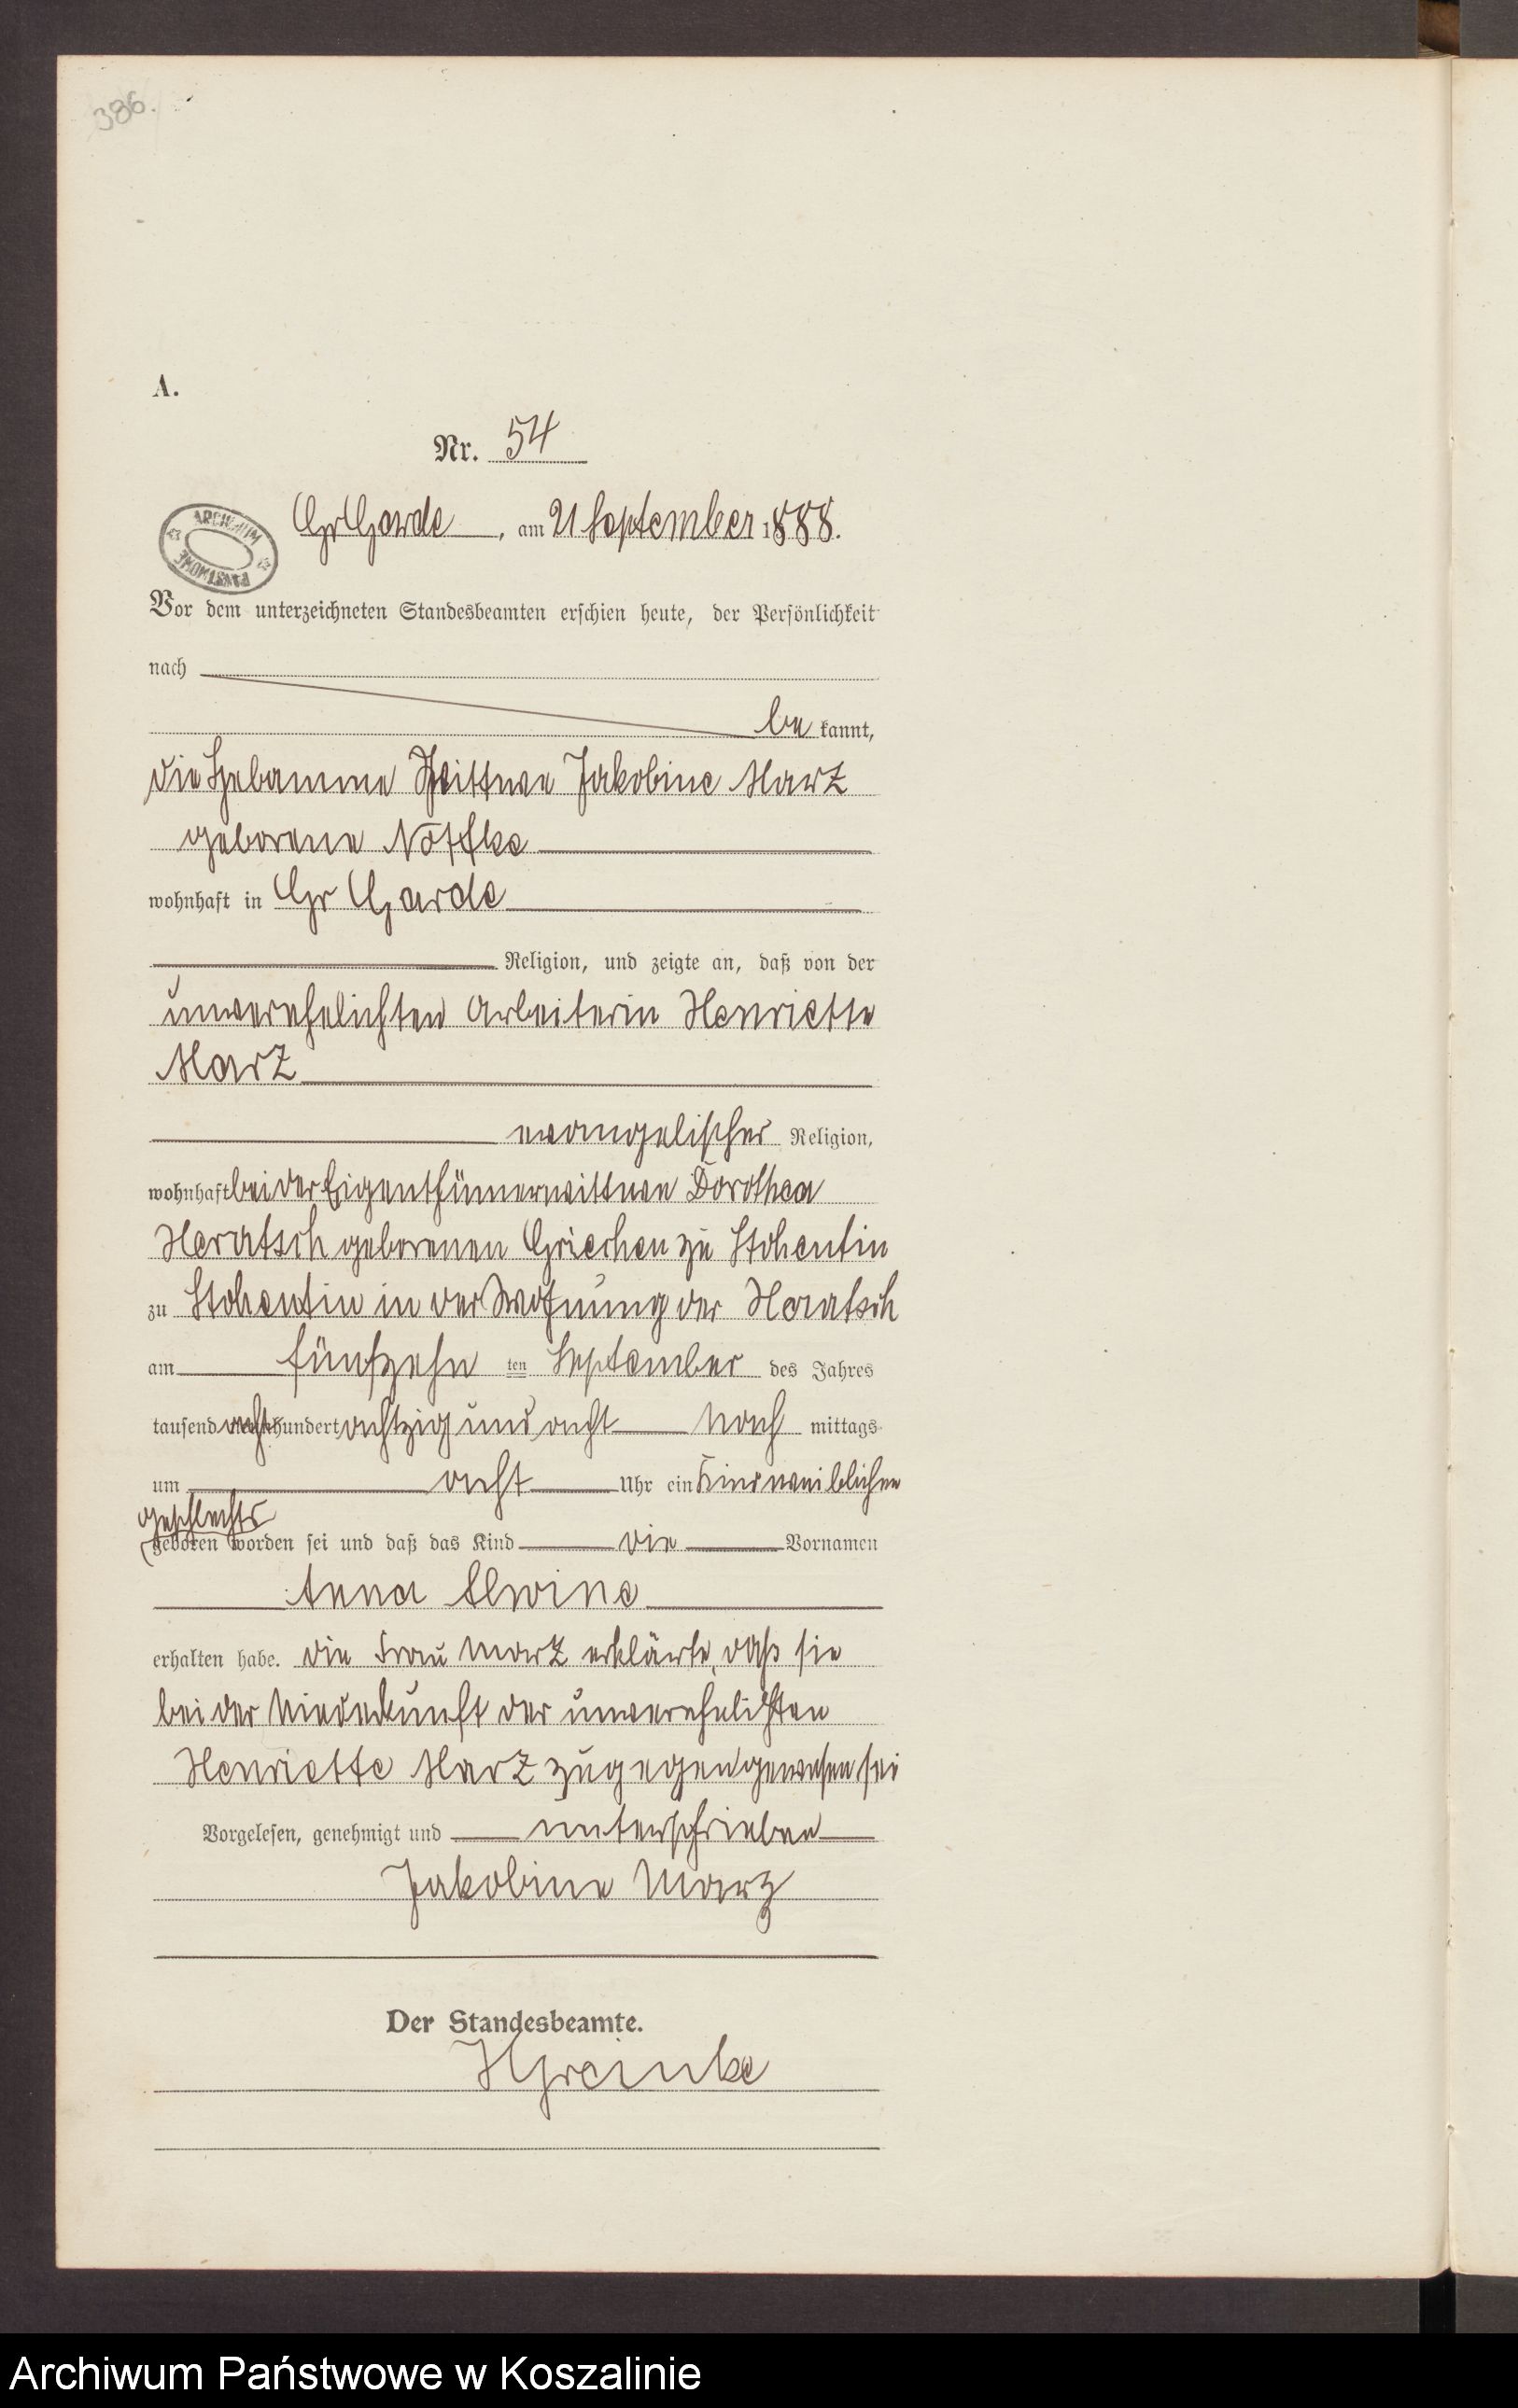 386.
A.
Nr. 54
ARCHIWUM PAŃSTWOWE
Gr Garde, am 21 September 1888.
Vor dem unterzeichneten Standesbeamten erschien heute, der Persönlichkeit
nach
be kannt,
die Hebamme Wittwe Jakobine Marz
geborene Nöffke
wohnhaft in Gr Garde
Religion, und zeigte an, daß von der
unverehelichten Arbeiterin Henriette
Marz
evangelischer Religion,
wohnhaft bei der Eigenthümerwittwe Dorothea
geborenen Griechen zu Stohentin
zu Stohentin in der Wohnung der
am fünfzehn ten September des Jahres
tausend acht hundert achtzig und acht Nach mittags
um acht Uhr ein Kind weiblichen
Geschlechts
geboren worden sei und daß das Kind die Vornamen
Anna Alwine
erhalten habe. Die Frau Marz erklärte, daß sie
bei der Niederkunft der unverehelichten
Henriette Marz zugegen gewesen sei
Vorgelesen, genehmigt und unterschrieben
Jakobine Marz
Der Standesbeamte.
HGreinke
Archiwum Państwowe w Koszalinie